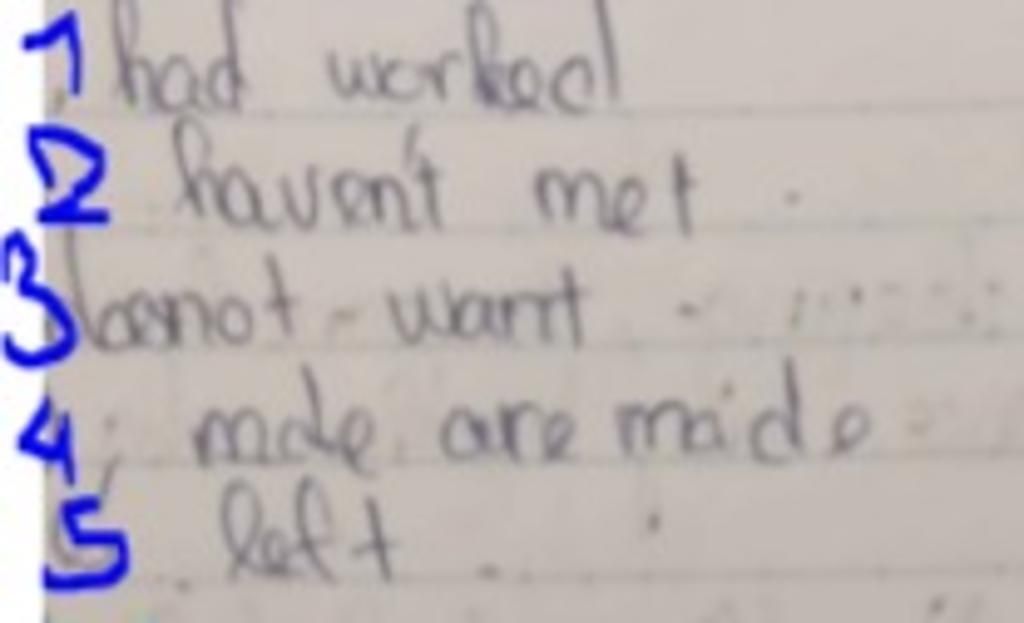 1 had worked
2 haven't met
3 want
4 made are made
5 left